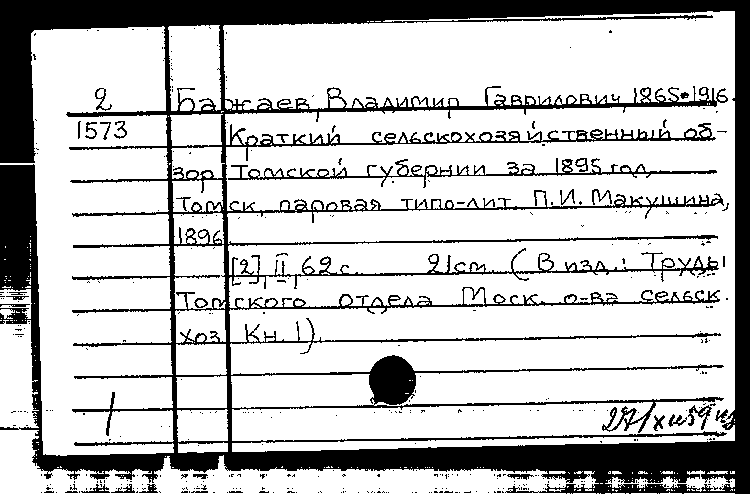 2 Бажаев, Владимир Гаврилович, 1865-1916.
1573 Краткий сельскохозяйственный об-
зор Томской губернии за 1895 год
Томск, паровая типо-лит. П.И. Макушина,
1896
[2], II, 62 с. 21 см. (В изд.: Труды
Томского отдела Моск. о-ва сельск.
хоз. Кн. 1).